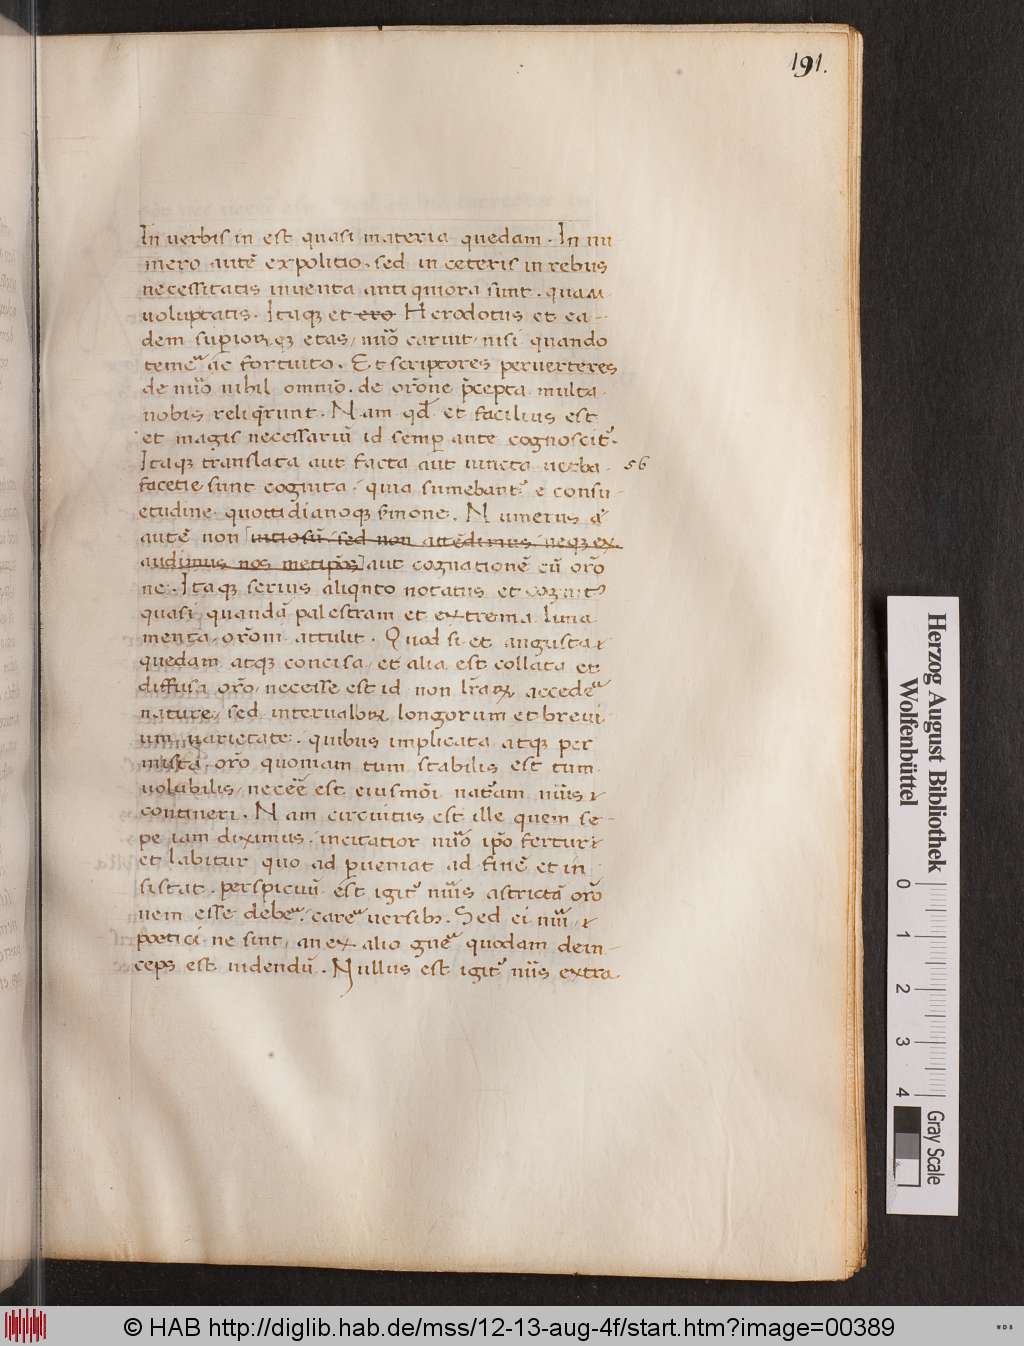 191.
In verbis in est quasi materia quedam. In nu
mero autē expolitio. sed in ceteris in rebus
necessitatis inventa antiquiora sunt. quam
voluptatis. Itaqꝫ et ero Herodotus et ea-
dem superiorꝗ etas, nūo caruit, nisi quando
temeᵃ ac fortuito. Et scriptores perveteres
de nūo nihil omnīo. de orōne p̄cepta multa
nobis reliqrunt. Nam qđ et facilius est
et magis necessariū id semp ante cognoscit᷑.
Itaqꝫ translata aut facta aut iuncta verba. 56
facetie sunt cognita. quia sumebant᷑ e consu-
etudine quottidianoqꝫ sermone. Numerus
autē non [uitiosū sed non attēdimus. neqꝫ ex
audimus nos metipōs] aut cognationē cū orō
ne. Itaqꝫ serius aliqnto notatus et cognit᷑
quasi quandā palestram et extrema linia
menta, orōni attulit. Quod si et angusta
quedam atqꝫ concisa, et alia est collata et
diffusa orō, necesse est id non lr̄aꝝ accedeᵃ
nature, sed intervalloꝝ longorum et brevi
um varietate. quibus implicata atqꝫ per
mista orō quoniam tum stabilis est tum
volabilis, necēē est eiusmōi nat᷑am nūis
contineri. Nam circuitus est ille quem se-
pe iam diximus. incitatior nūo ipō fertur
et labitur quo ad pveniat ad finē et in
sistat. perspicuū est igit᷑ nūis astrictā orō
nem esse debeᵃ. careᵃ versibꝫ. Sed ei nūi
poetici ne sint, an ex alio gn̄eᵃ quodam dein-
ceps est videndū. Nullus est igit᷑ nūis extra
Herzog August Bibliothek
Wolfenbüttel
0 1 2 3 4
Gray Scale
© HAB http://diglib.hab.de/mss/12-13-aug-4f/start.htm?image=00389